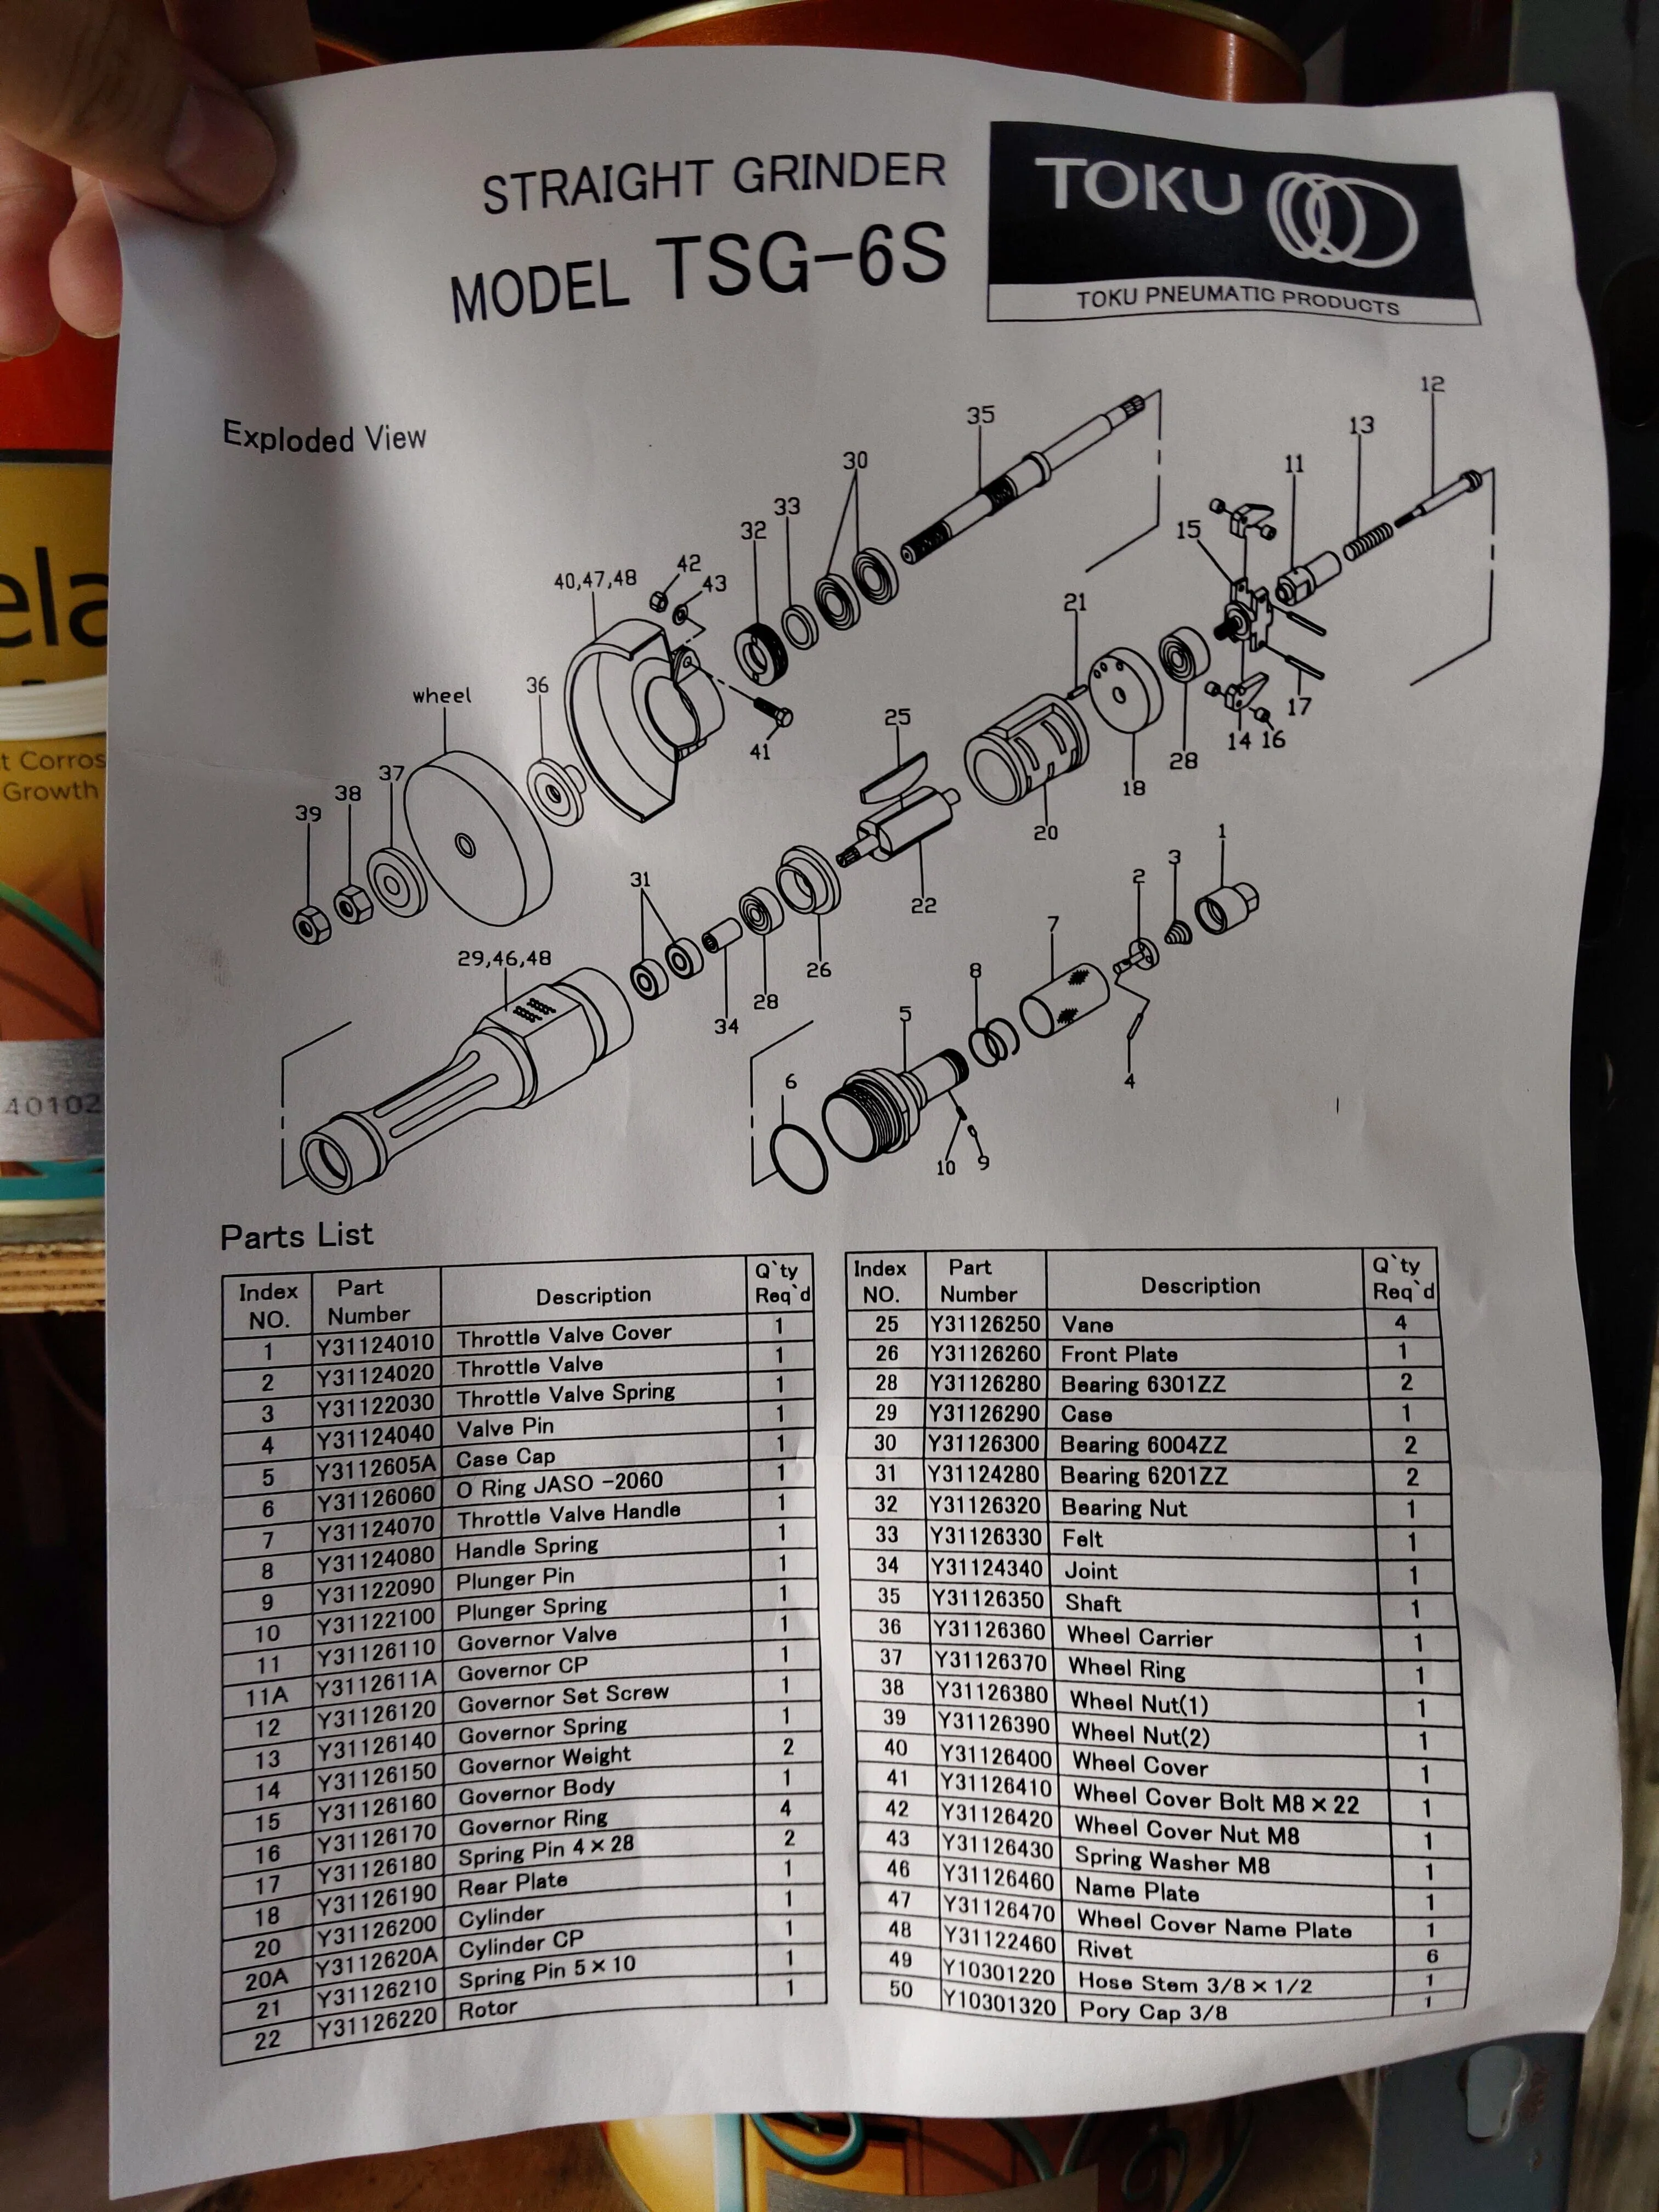 STRAIGHT GRINDER
MODEL TSG-6S
TOKU
TOKU PNEUMATIC PRODUCTS
ela
t Corros
Growth
40102
Exploded View
12
35
13
30
11
33
15
32
42
40,47,48
43
21
36
wheel
17
25
14 16
41
28
37
18
38
20
39
1
3
31
2
22
7
29,46,48
26
8
28
5
34
6
4
10 9
Parts List
Index NO. Part Number Description Q`ty Req`d
1 Y31124010 Throttle Valve Cover 1
2 Y31124020 Throttle Valve 1
3 Y31122030 Throttle Valve Spring 1
4 Y31124040 Valve Pin 1
5 Y3112605A Case Cap 1
6 Y31126060 O Ring JASO -2060 1
7 Y31124070 Throttle Valve Handle 1
8 Y31124080 Handle Spring 1
9 Y31122090 Plunger Pin 1
10 Y31122100 Plunger Spring 1
11 Y31126110 Governor Valve 1
11A Y3112611A Governor CP 1
12 Y31126120 Governor Set Screw 1
13 Y31126140 Governor Spring 1
14 Y31126150 Governor Weight 2
15 Y31126160 Governor Body 1
16 Y31126170 Governor Ring 4
17 Y31126180 Spring Pin 4×28 2
18 Y31126190 Rear Plate 1
20 Y31126200 Cylinder 1
20A Y3112620A Cylinder CP 1
21 Y31126210 Spring Pin 5×10 1
22 Y31126220 Rotor 1
Index NO. Part Number Description Q`ty Req`d
25 Y31126250 Vane 4
26 Y31126260 Front Plate 1
28 Y31126280 Bearing 6301ZZ 2
29 Y31126290 Case 1
30 Y31126300 Bearing 6004ZZ 2
31 Y31124280 Bearing 6201ZZ 2
32 Y31126320 Bearing Nut 1
33 Y31126330 Felt 1
34 Y31124340 Joint 1
35 Y31126350 Shaft 1
36 Y31126360 Wheel Carrier 1
37 Y31126370 Wheel Ring 1
38 Y31126380 Wheel Nut(1) 1
39 Y31126390 Wheel Nut(2) 1
40 Y31126400 Wheel Cover 1
41 Y31126410 Wheel Cover Bolt M8×22 1
42 Y31126420 Wheel Cover Nut M8 1
43 Y31126430 Spring Washer M8 1
46 Y31126460 Name Plate 1
47 Y31126470 Wheel Cover Name Plate 1
48 Y31122460 Rivet 6
49 Y10301220 Hose Stem 3/8×1/2 1
50 Y10301320 Pory Cap 3/8 1